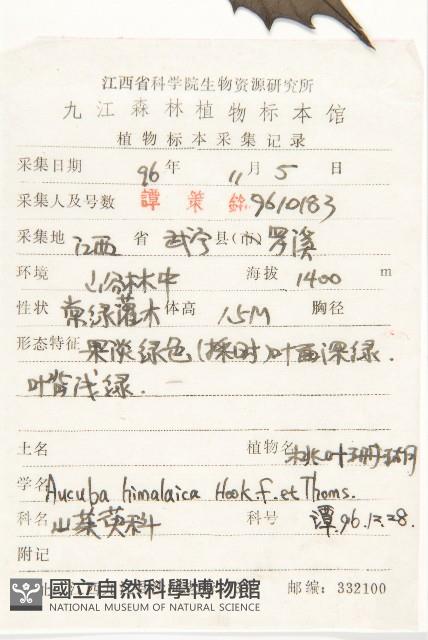 江西省科学院生物资源研究所
九江森林植物标本馆
植物标本采集记录
采集日期 96年 11月 5 日
采集人及号数 譚策銘 9610183
采集地 江西 省 武宁 县(市) 罗溪
环境 山谷林中 海拔 1400 m
性状 常绿灌木 体高 1.5M 胸径
形态特征 果淡绿色(採时)叶面深绿.
叶背浅绿.
土名 植物名 桃叶珊瑚
学名 Aucuba himalaica Hook.f. et Thoms.
科名 山茱萸科 科号 譚.96.12.28.
附记
邮编: 332100
國立自然科學博物館
NATIONAL MUSEUM OF NATURAL SCIENCE